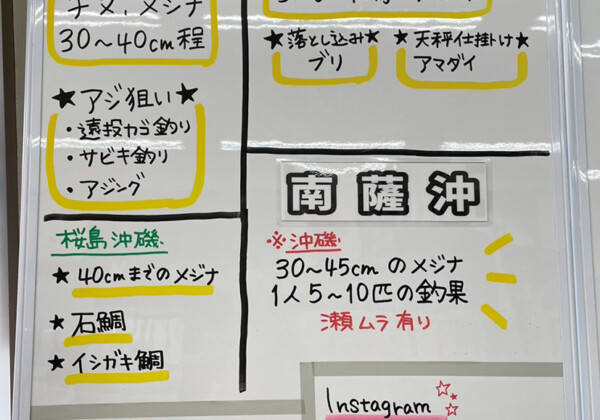 30〜40cm程
★アジ狙い★
・遠投カゴ釣り
・サビキ釣り
・アジング
桜島沖磯
★40cmまでのメジナ
★石鯛
★イシガキ鯛
★落とし込み★
ブリ
★天秤仕掛け★
アマダイ
南薩沖
※沖磯
30〜45cmのメジナ
1人5〜10匹の釣果
瀬ムラ有り
Instagram